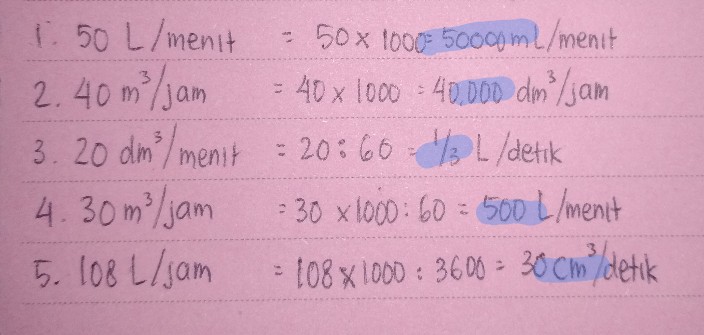 1. 50 L/menit = 50 x 1000 = 50000 mL/menit
2. 40 m³/jam = 40 x 1000 = 40.000 dm³/jam
3. 20 dm³/menit = 20 : 60 = 1/3 L/detik
4. 30 m³/jam = 30 x 1000 : 60 = 500 L/menit
5. 108 L/jam = 108 x 1000 : 3600 = 30 cm³/detik